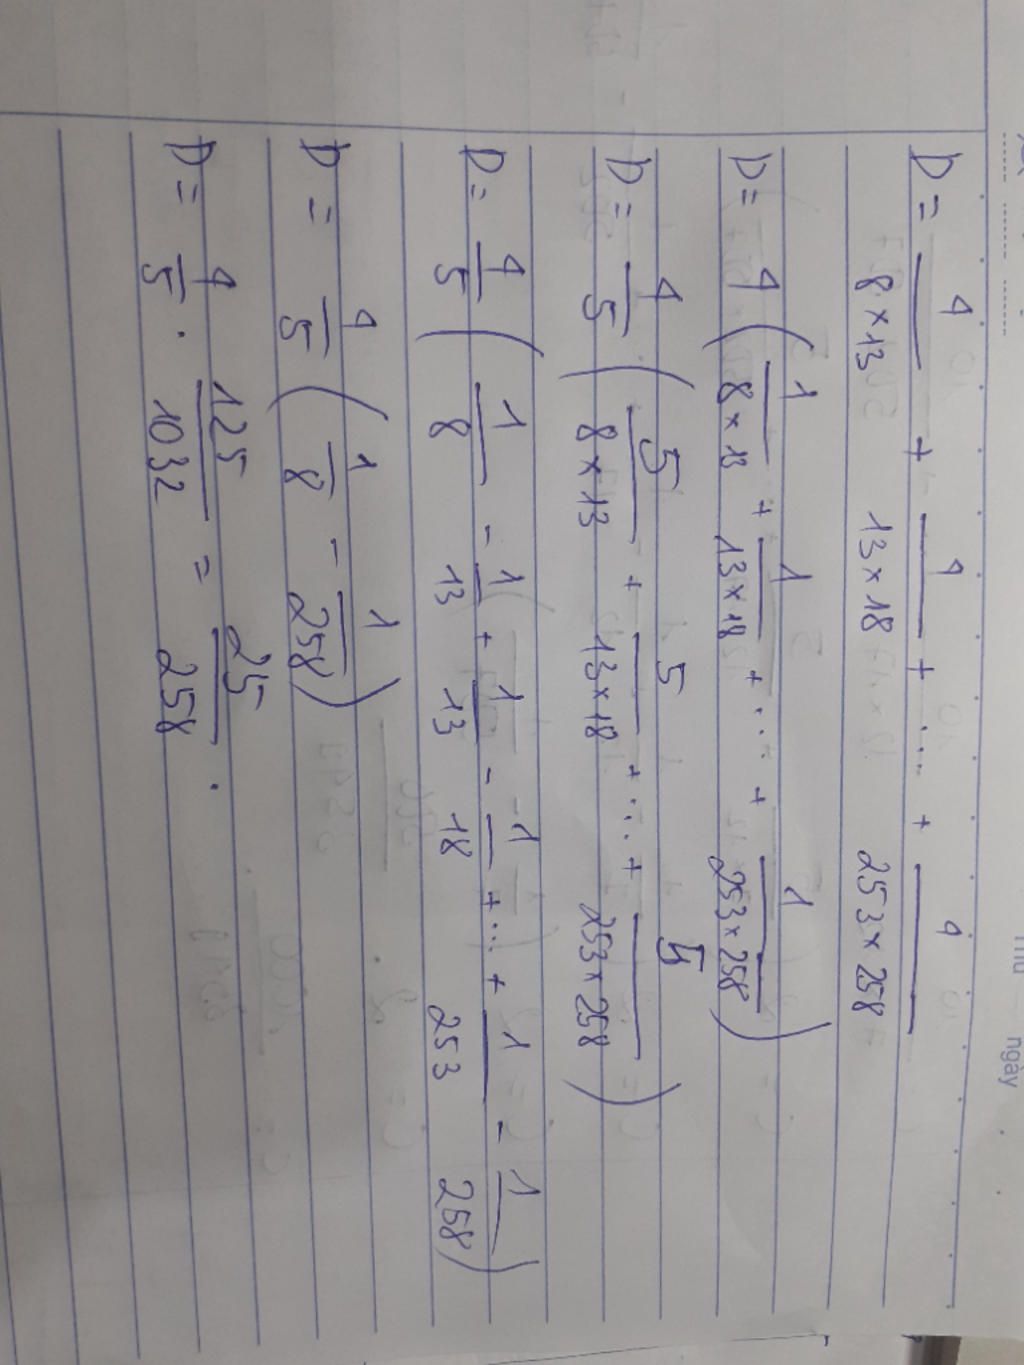 Thứ ngày
D = 4/(8 × 13) + 4/(13 × 18) + ... + 4/(253 × 258)
D = 4 (1/(8 × 13) + 1/(13 × 18) + ... + 1/(253 × 258))
D = 4/5 (5/(8 × 13) + 5/(13 × 18) + ... + 5/(253 × 258))
D = 4/5 (1/8 - 1/13 + 1/13 - 1/18 + ... + 1/253 - 1/258)
D = 4/5 (1/8 - 1/258)
D = 4/5 . 125/1032 = 25/258 .